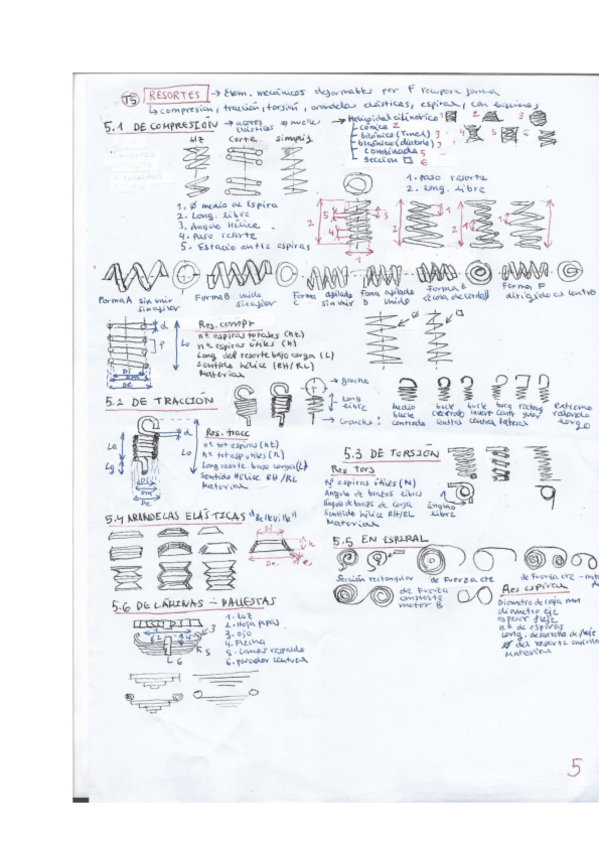 T5 RESORTES → Elem. mecánicos deformables por F recupera forma
↳ compresión, tracción, torsión, arandelas elásticas, espiral, con
5.1 DE COMPRESIÓN → aceros elásticos → muelles
Helicoidal cilíndrico 1
cónico 2
bicónico (Tonel) 3
bicónico (diabolo)
Combinada 5
Seccion □ 6
1 2 3
4 5 6
Hz corte simplif
1. Ø medio de Espira
2. Long. Libre
3. Angulo Hélice
4. Paso resorte
5. Estacio entre espiras
1. paso resorte
2. Long. libre
Forma A sin unir sin afilar
Forma B unido sin afilar
Forma C afilado sin unir
Forma afilado D unido
Forma E (cola de cerdo)
Forma F dirigido al centro
Res. compr
nº espiras totales (nt)
nº espiras útiles (n)
Long del resorte bajo carga (L)
Sentido hélice (RH/RL)
Material
d
P
Lo
Di
Dm
De
5.2 DE TRACCIÓN
gancho
Long libre
Gancho:
medio bucle centrado
Res. tracc
nº tot espiras (nt)
nº tot esp utiles (n)
Long resorte bajo carga (L)
Sentido Hélice RH/RL
Material
5.3 DE TORSIÓN
Res Tors
Nº espiras útiles (N)
Angulo de brazos libres
Angulo de brazos de carga
Sentido hélice RH/RL
Material
ángulo libre
5.4 ARANDELAS ELÁSTICAS "Belleville"
Di
De
5.5 EN ESPIRAL
Sección rectangular
de Fuerza cte
de Fuerza cte -
de Fuerza constante motor B
Res espiral
Diametro de caja mm
diametro eje
espesor fleje
nº de espiras
Long. desarrollo de fleje
Ø del resorte
Material
5.6 DE LÁMINAS - BALLESTAS
2. Hoja
3. ojo
5. Lamas respaldo
6. central
5